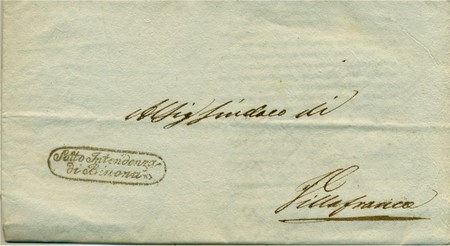 Al Sig Sindaco di
Sotto Intendenza
di Bivona
Villafranca